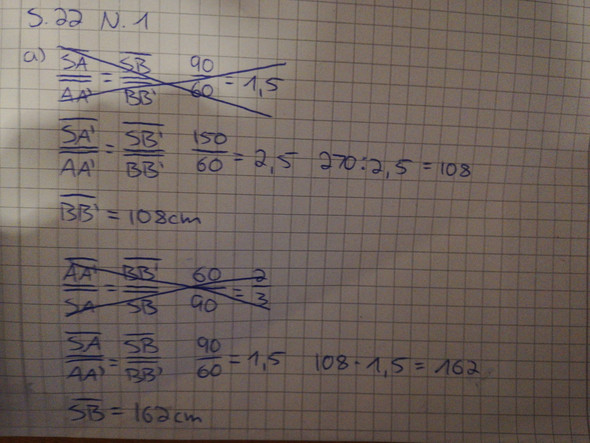 S.22 N.1
a) SA/AA' = SB/BB' 90/60 = 1,5
SA'/AA' = SB'/BB' 150/60 = 2,5 270:2,5 = 108
BB' = 108cm
AA'/SA = BB'/SB 60/90 = 2/3
SA/AA' = SB/BB' 90/60 = 1,5 108·1,5 = 162
SB = 162cm